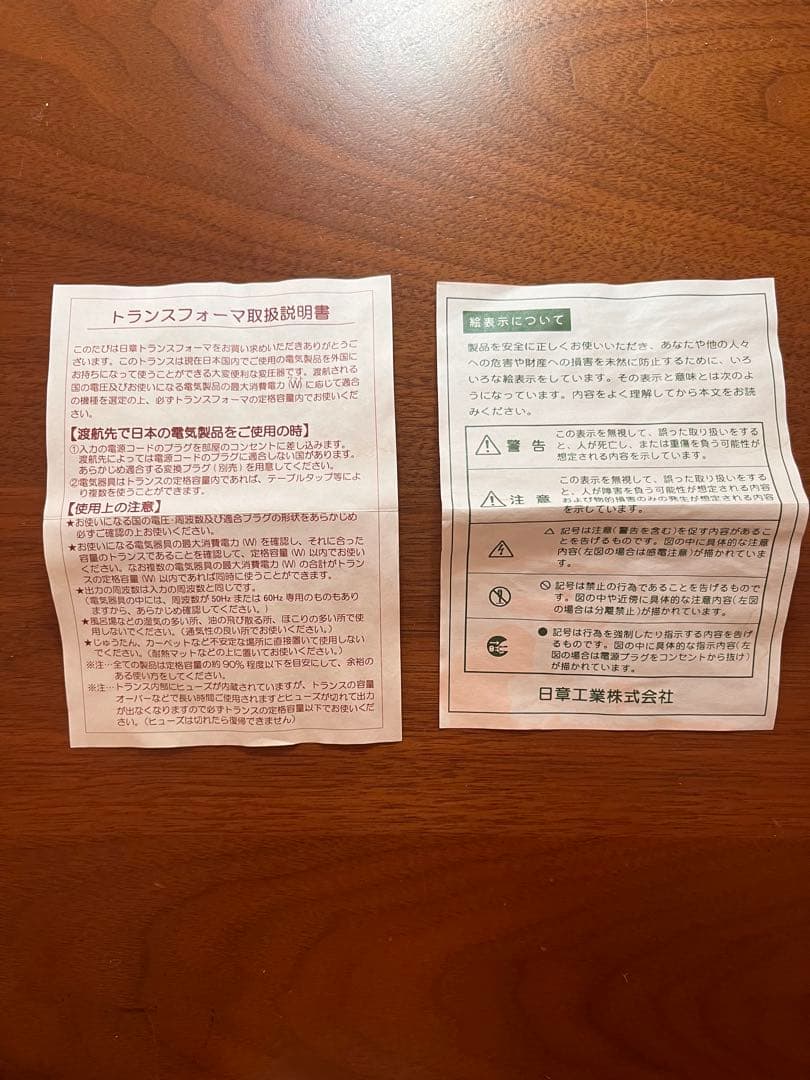 トランスフォーマ取扱説明書
このたびは日章トランスフォーマをお買い求めいただきありがとうご
ざいます。このトランスは現在日本国内でご使用の電気製品を外国に
お持ちになって使うことができる大変便利な変圧器です。渡航される
国の電圧及びお使いになる電気製品の最大消費電力(W)に応じて適合
の機種を選定の上、必ずトランスフォーマの定格容量内でお使いくだ
さい。
【渡航先で日本の電気製品をご使用の時】
①入力の電源コードのプラグを部屋のコンセントに差し込みます。
渡航先によっては電源コードのプラグに適合しない国があります。
あらかじめ適合する変換プラグ(別売)を用意してください。
②電気器具はトランスの定格容量内であれば、テーブルタップ等によ
り複数を使うことができます。
【使用上の注意】
★お使いになる国の電圧・周波数及び適合プラグの形状をあらかじめ
必ずご確認の上お使いください。
★お使いになる電気器具の最大消費電力(W)を確認し、それに合った
容量のトランスであることを確認して、定格容量(W)以内でお使い
ください。なお複数の電気器具の最大消費電力(W)の合計がトラン
スの定格容量(W)以内であれば同時に使うことができます。
★出力の周波数は入力の周波数と同じです。
(電気器具の中には、周波数が50Hzまたは60Hz専用のものもあり
ますから、あらかじめ確認してください。)
★風呂場などの湿気の多い所、油の飛び散る所、ほこりの多い所で使
用しないでください。(通気性の良い所でお使いください。)
★じゅうたん、カーペットなど不安定な場所に直接置いて使用しない
でください。(耐熱マットなどの上に置いてお使いください。)
※注…全ての製品は定格容量の約90%程度以下を目安にして、余裕の
ある使い方をしてください。
※注…トランス内部にヒューズが内蔵されていますが、トランスの容量
オーバーなどで長い時間ご使用されますとヒューズが切れて出力
が出なくなりますので必ずトランスの定格容量以下でお使いくだ
さい。(ヒューズは切れたら復帰できません)
絵表示について
製品を安全に正しくお使いいただき、あなたや他の人々
への危害や財産への損害を未然に防止するために、いろ
いろな絵表示をしています。その表示と意味とは次のよ
うになっています。内容をよく理解してから本文をお読
みください。
警告
この表示を無視して、誤った取り扱いをする
と、人が死亡し、または重傷を負う可能性が
想定される内容を示しています。
注意
この表示を無視して、誤った取り扱いをする
と、人が障害を負う可能性が想定される内容
および物的損害のみの発生が想定される内容
を示しています。
△ 記号は注意(警告を含む)を促す内容があるこ
とを告げるものです。図の中に具体的な注意
内容(左図の場合は感電注意)が描かれていま
す。
記号は禁止の行為であることを告げるもので
す。図の中や近傍に具体的な注意内容(左図
の場合は分離禁止)が描かれています。
● 記号は行為を強制したり指示する内容を告げ
るものです。図の中に具体的な指示内容(左
図の場合は電源プラグをコンセントから抜け)
が描かれています。
日章工業株式会社